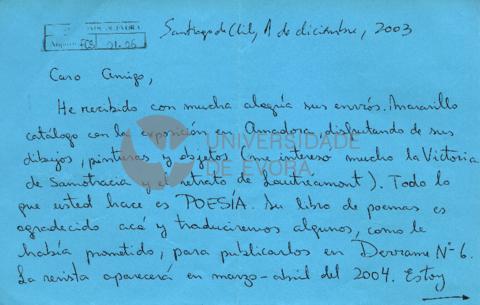 Santiago de Chile, 1 de diciembre, 2003
FCS 01.26
Caro Amigo,
He recibido con mucha alegría sus envíos. Maravilloso
catálogo con la exposición en Amadora, disfrutando de sus
dibujos, pinturas y objetos (me intereso mucho la Victoria
de Samotracia y el retrato de Lautreamont). Todo lo
que usted hace es POESÍA. Su libro de poemas es
agradecido acá y traduciremos algunos, como le
había prometido, para publicarlos en Derrame Nº 6.
La revista aparecerá en marzo-abril del 2004. Estoy
UNIVERSIDADE
DE ÉVORA